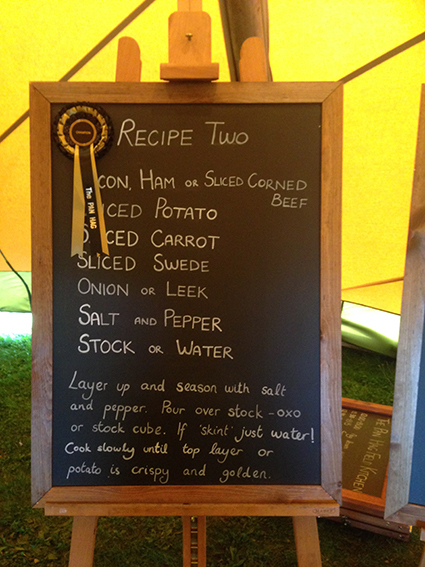 RECIPE TWO
CON, HAM OR SLICED CORNED
BEEF
ICED POTATO
SLICED CARROT
SLICED SWEDE
ONION OR LEEK
SALT AND PEPPER
STOCK OR WATER
Layer up and season with salt
and pepper. Pour over stock - oxo
or stock cube. If 'skint' just water!
Cook slowly until top layer or
potato is crispy and golden.
The PAN HAG
KITCHEN